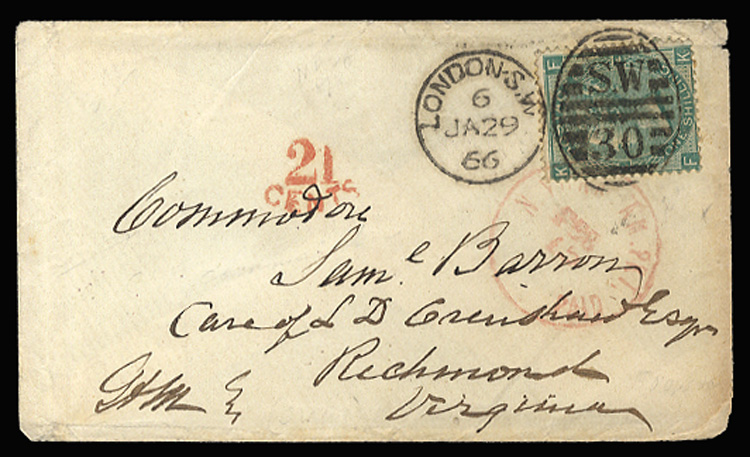 LONDON·S.W
6
JA 29
66
SW
30
ONE SHILLING
F K
K F
21
CENTS
N. PKT.
PAID
Commodore
Saml. Barron
Care of L D Crenshaw Esqr
Richmond
Virginia